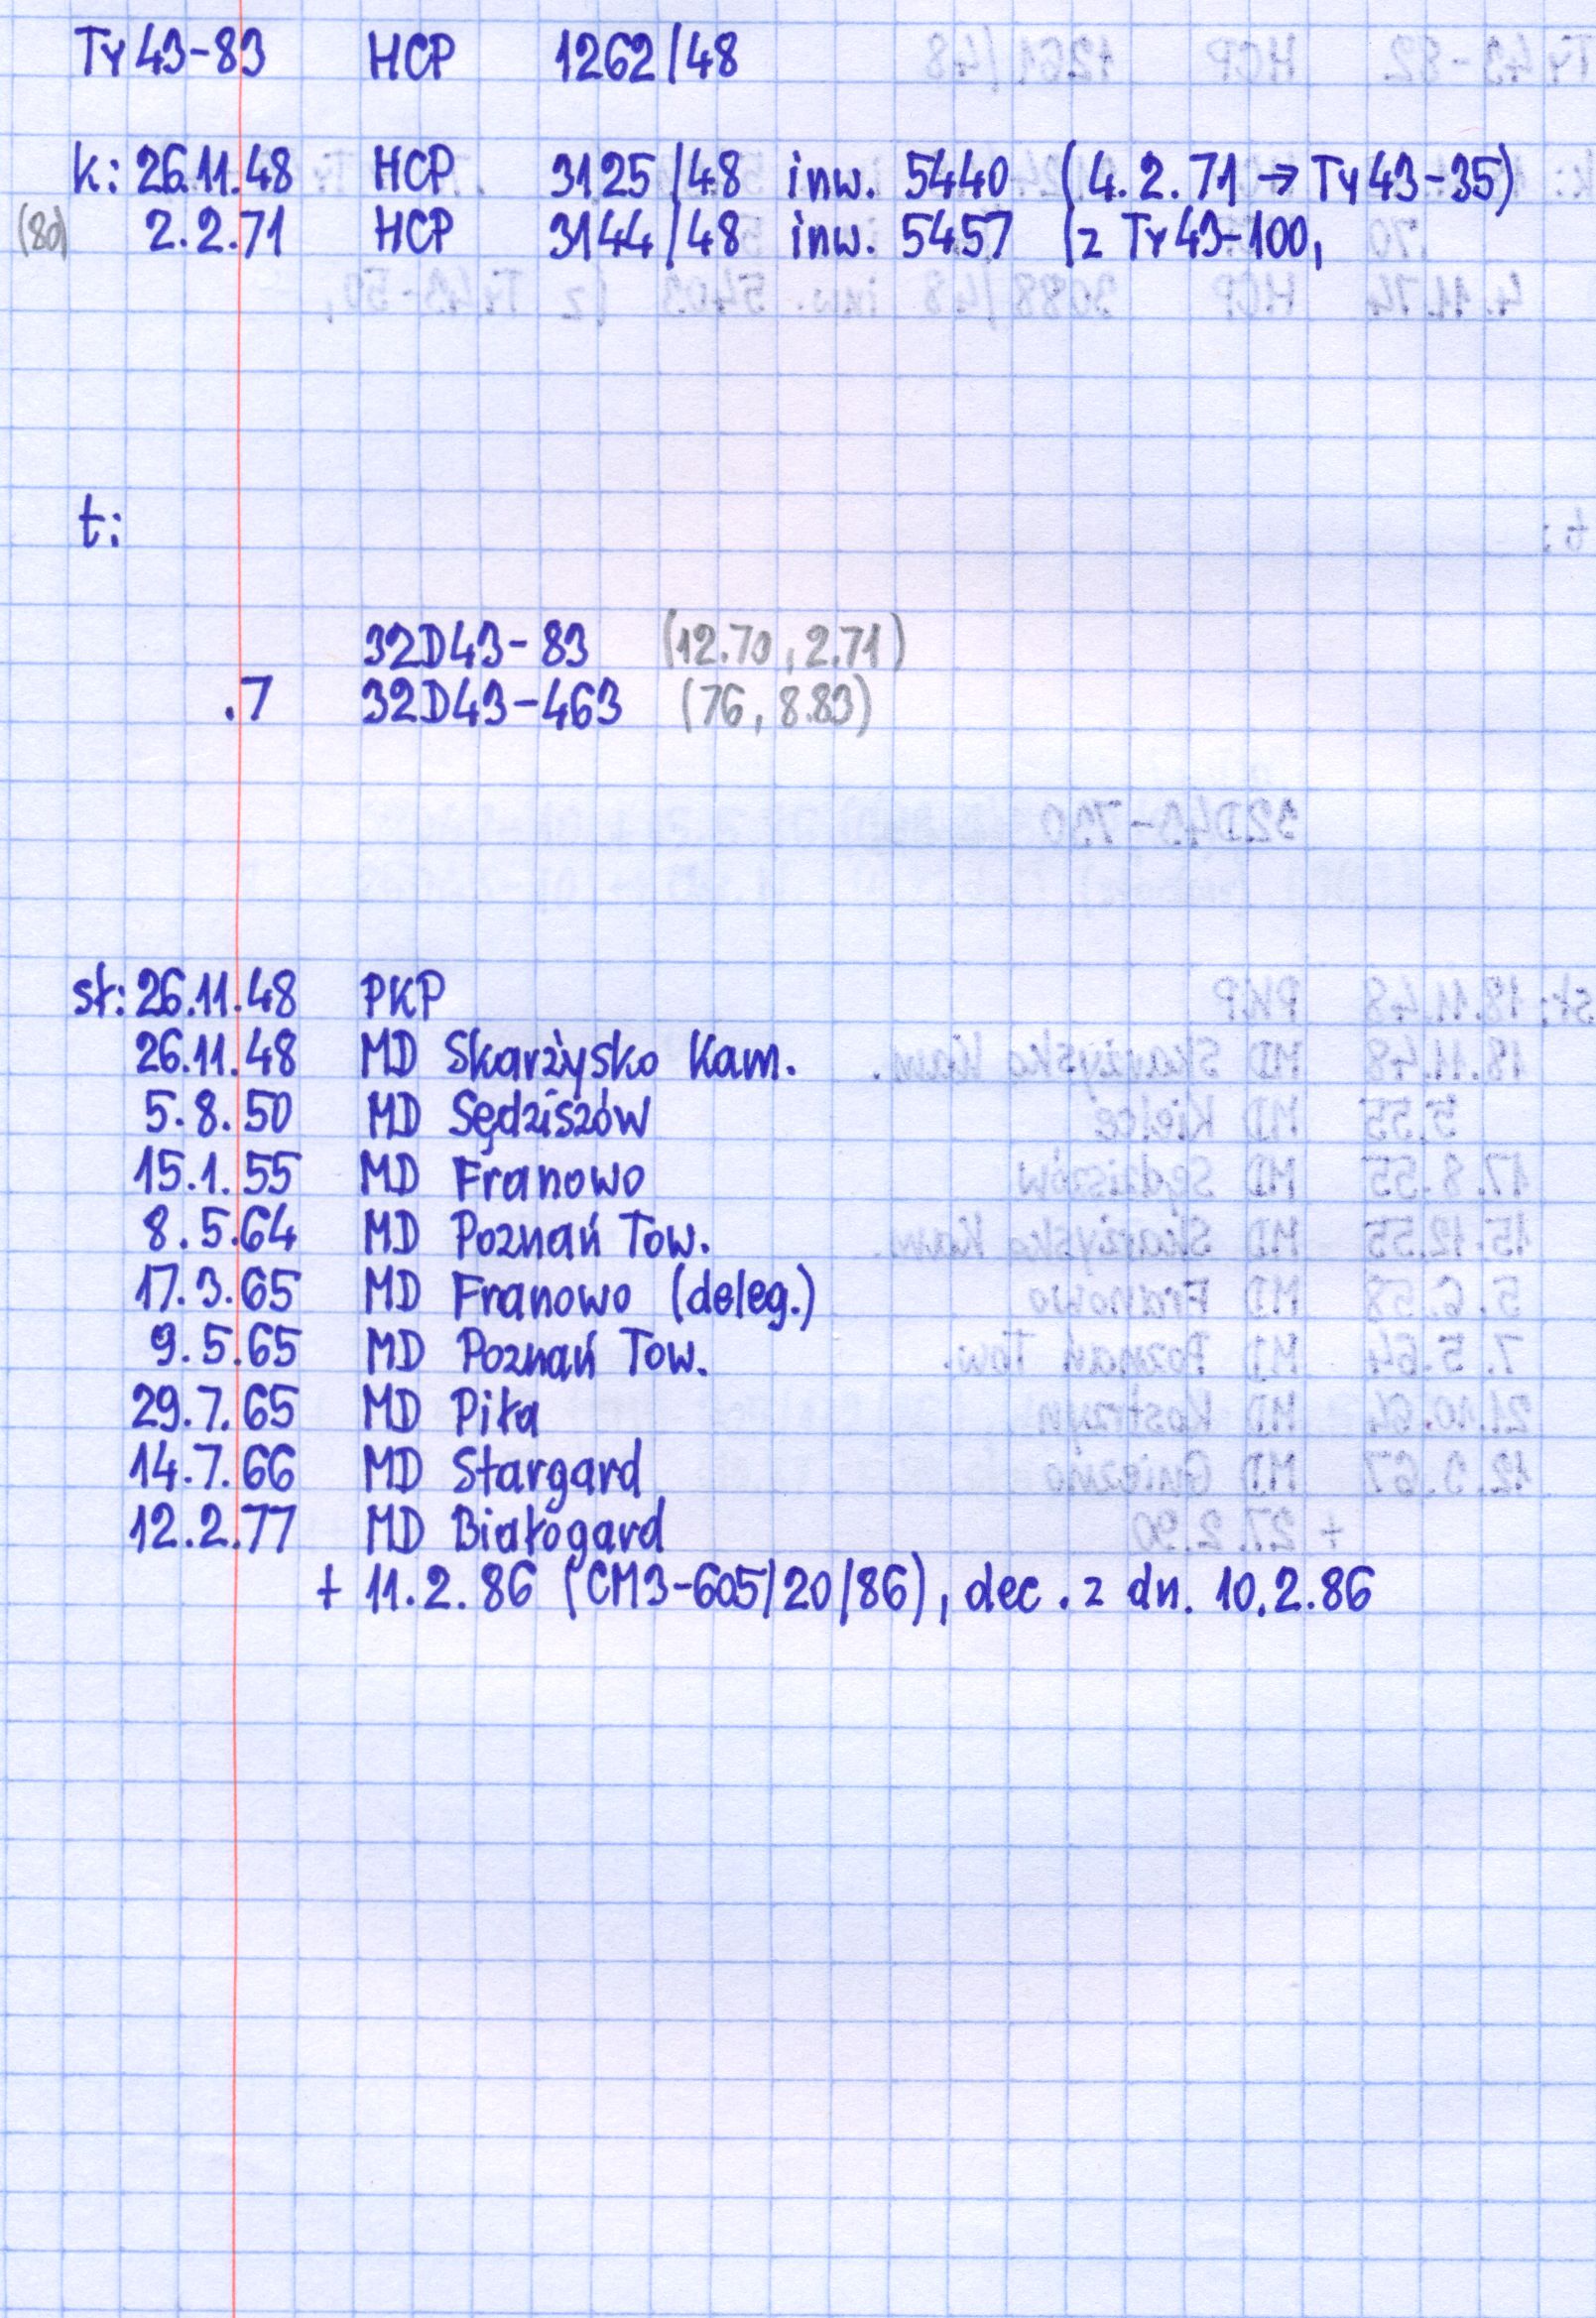 Ty43-83 HCP 1262/48
k: 26.11.48 HCP 3125/48 inw. 5440 (4.2.71 → Ty43-35)
(80) 2.2.71 HCP 3144/48 inw. 5457 (z Ty43-100,
t:
32D43-83 (12.70, 2.71)
.7 32D43-463 (76, 8.83)
st: 26.11.48 PKP
26.11.48 MD Skarżysko Kam.
5.8.50 MD Sędziszów
15.1.55 MD Franowo
8.5.64 MD Poznań Tow.
17.3.65 MD Franowo (deleg.)
9.5.65 MD Poznań Tow.
29.7.65 MD Piła
14.7.66 MD Stargard
12.2.77 MD Białogard
+ 11.2.86 (CM3-605/20/86), dec. z dn. 10.2.86